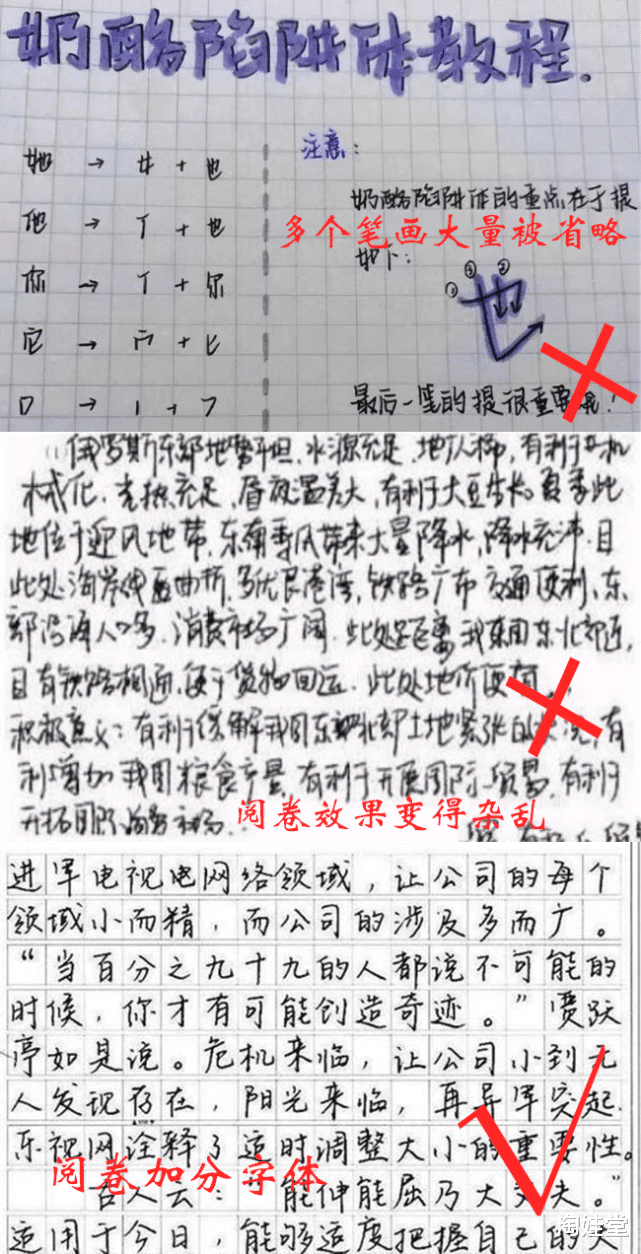 奶酪陷阱体教程.
注意:
她 → 女 + 也
他 → 亻 + 也
你 → 亻 + 尔
它 → 宀 + 匕
口
奶酪陷阱体的重点在于提
多个笔画大量被省略
如下:
① ③ ②
也
最后一笔的提很重要哦!
俄罗斯东部地势平坦,水源充足,地广人稀,有利于机
械化.光热充足,昼夜温差大,有利于大豆生长.夏季此
地位于迎风地带,东南季风带来大量降水,降水充沛.且
此处海岸线曲折,多优良港湾,铁路广布交通便利,东
部沿海人口多.消费市场广阔.此处距离我国东北部近,
且有铁路相通,便于货物回运.此处地价便宜.
积极意义:有利于缓解我国东北部土地紧张的状况,有
利增加我国粮食产量,有利于开展国际贸易,有利于
开拓国际市场.
阅卷效果变得杂乱
进军电视电网络领域,让公司的每个
领域小而精,而公司的涉及多而广。
“当百分之九十九的人都说不可能的
时候,你才有可能创造奇迹。”贾跃
亭如是说。危机来临,让公司小到无
人发现存在,阳光来临,再异军突起.
乐视网诠释了适时调整大小的重要性。
阅卷加分字体
古人云:“能伸能屈乃大丈夫。”
适用于今日,能够适度把握自己的大
淘娃堂